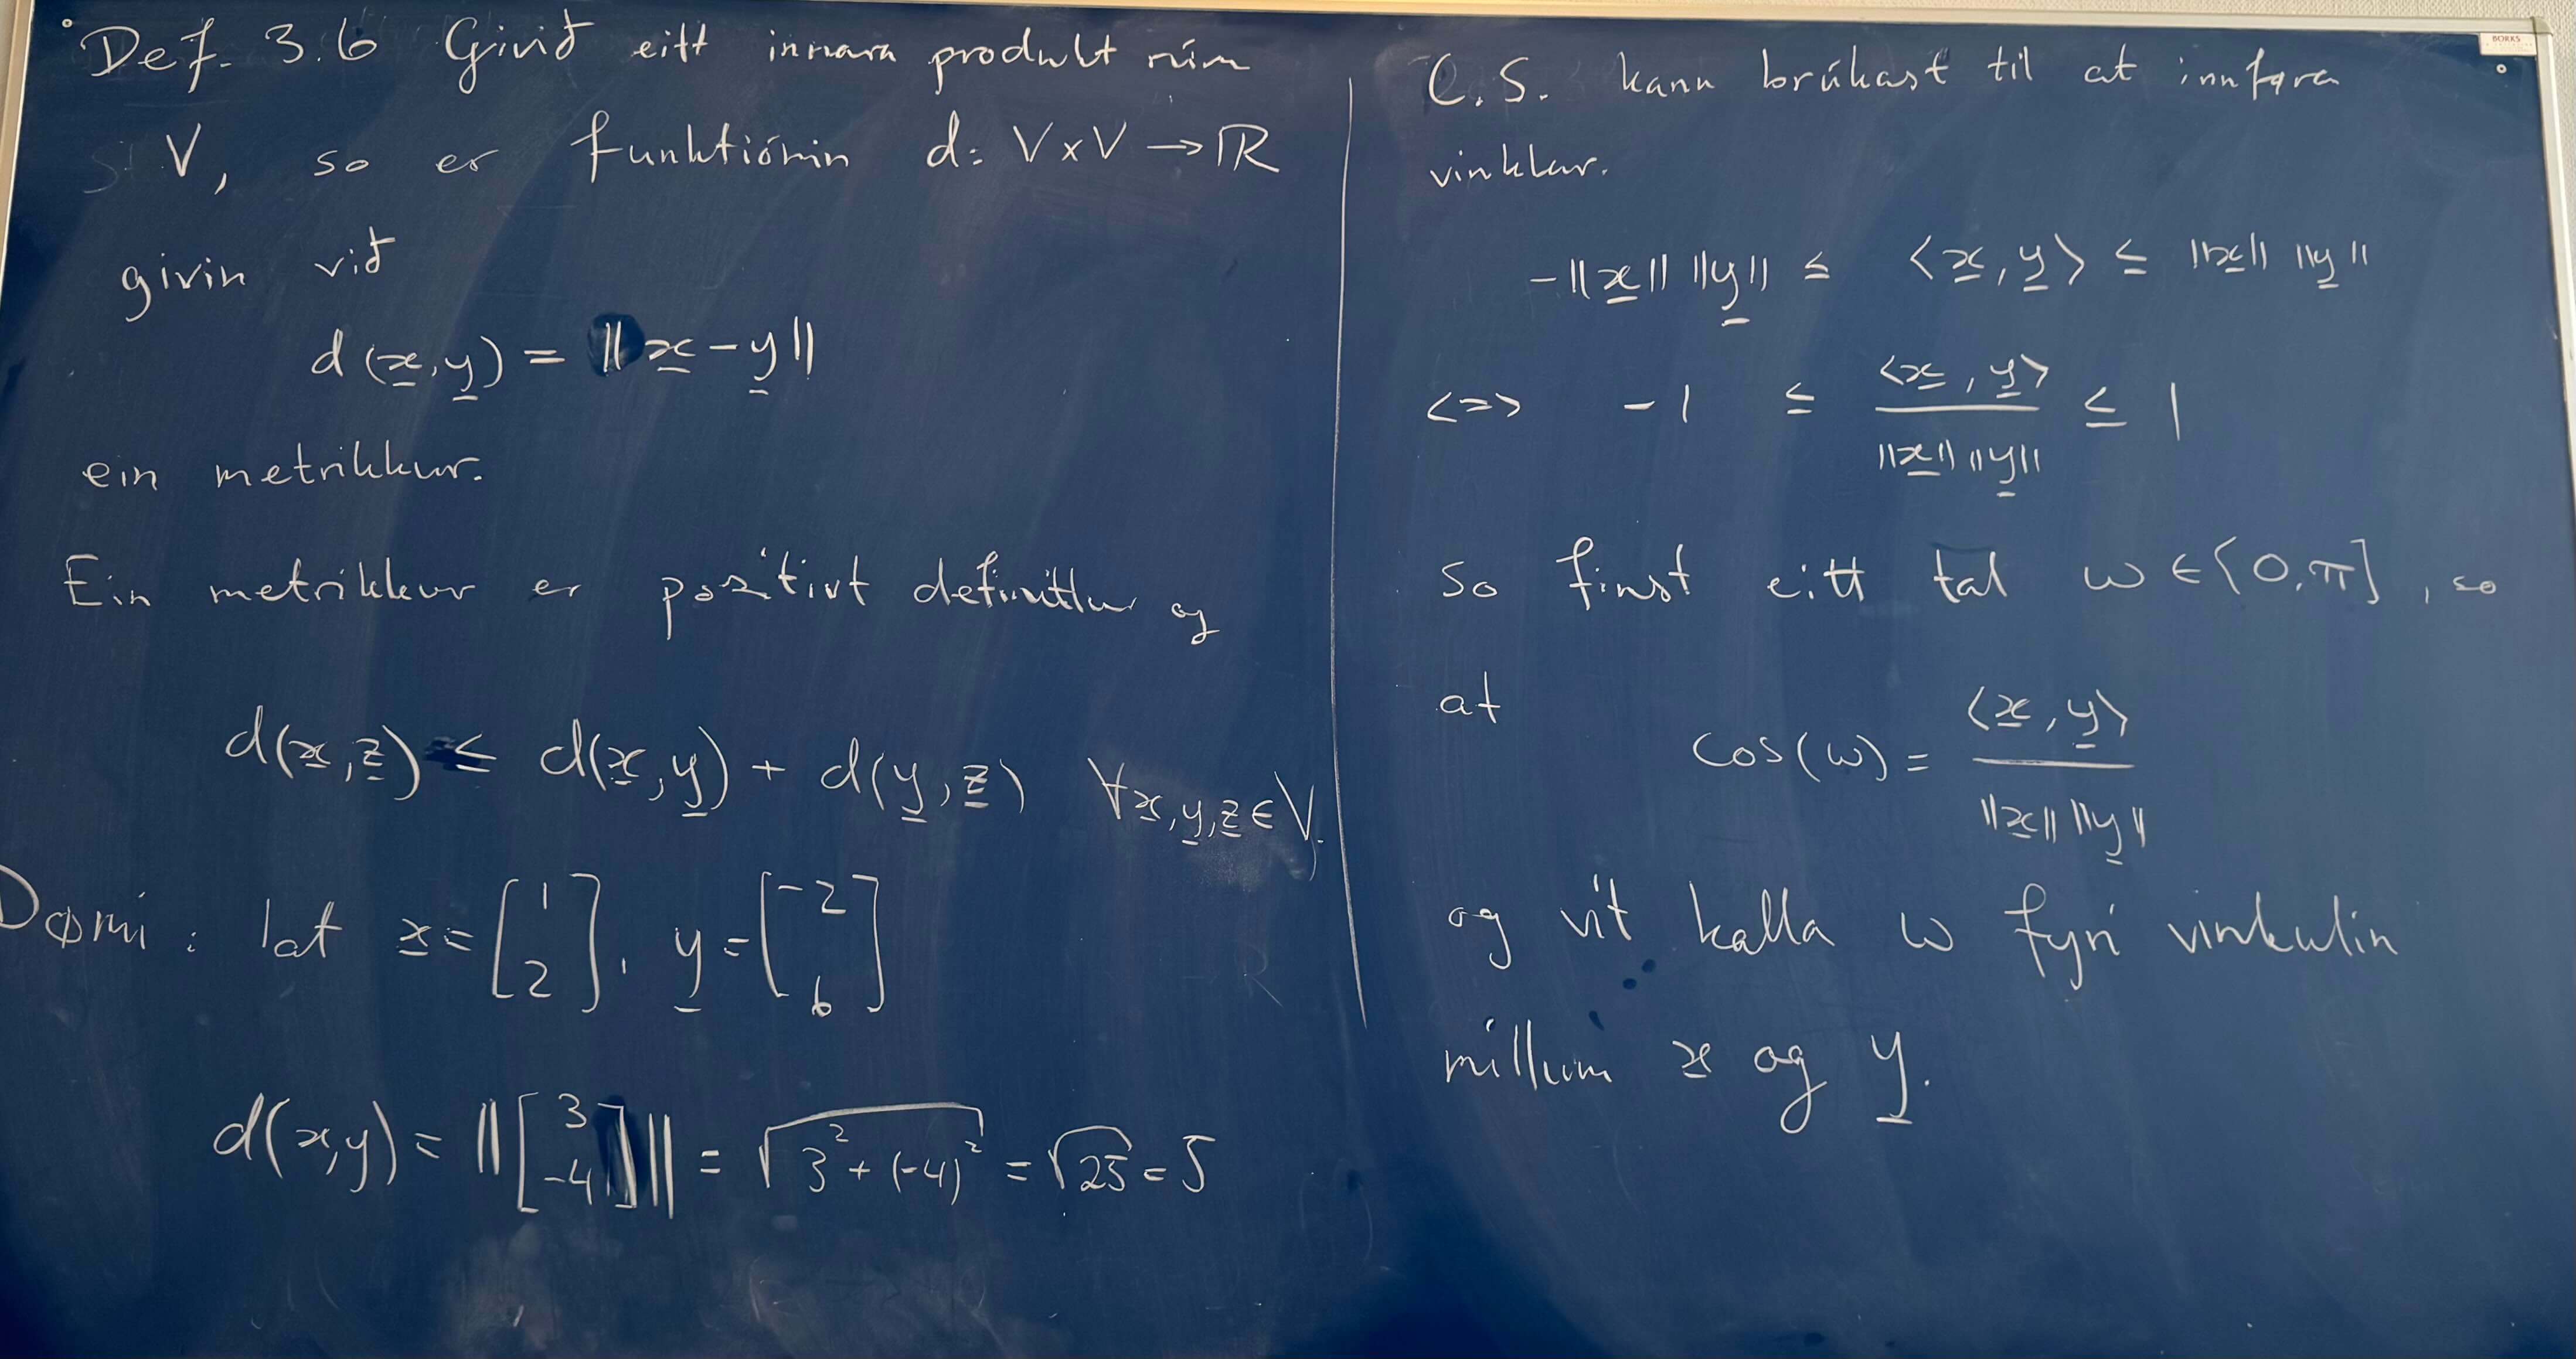 Def. 3.6 Givið eitt innara produkt rúm
V, so er funktiónin d: V×V → ℝ
givin við
d(x̲,y̲) = ||x̲ − y̲||
ein metrikkur.
Ein metrikkur er positivt definittur og
d(x̲,z̲) ≤ d(x̲,y̲) + d(y̲,z̲) ∀x̲,y̲,z̲ ∈ V.
Dømi: lat x̲ = [1 2], y̲ = [-2 6]
d(x,y) = ||[3 -4]|| = √(3² + (-4)²) = √25 = 5
C.S. kann brúkast til at innføra
vinklar.
-||x̲|| ||y̲|| ≤ <x̲,y̲> ≤ ||x̲|| ||y̲||
<=> -1 ≤ <x̲,y̲> / ||x̲|| ||y̲|| ≤ 1
so finst eitt tal ω ∈ [0,π], so
at
cos(ω) = <x̲,y̲> / ||x̲|| ||y̲||
og vit kalla ω fyri vinkulin
millum x̲ og y̲.
BORKS